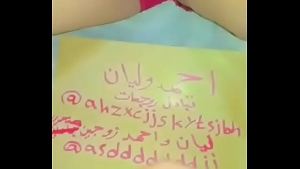 احمد وليان
تبادل زوجات
@ahzxcjjskytsjbh
ليان واحمد زوجين
@asddddddjj